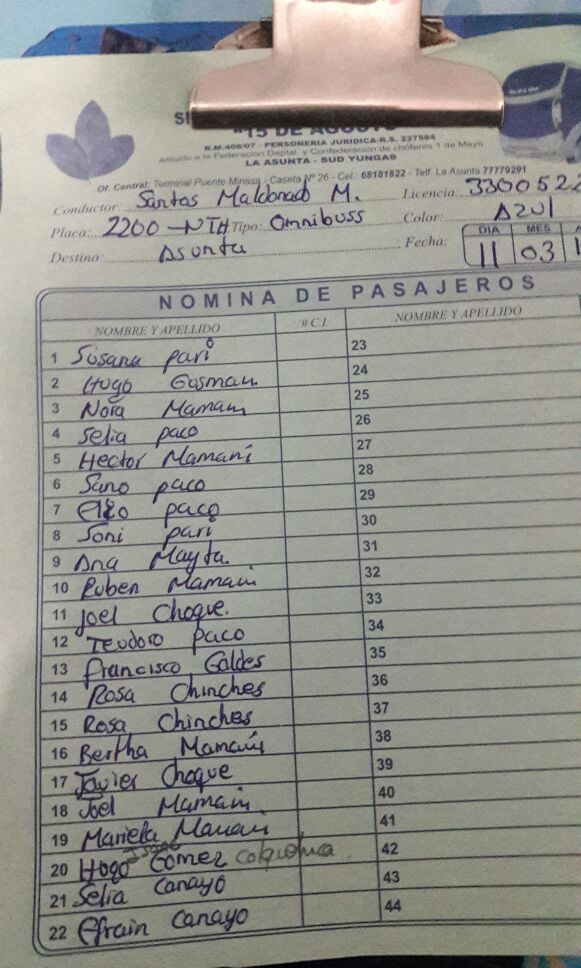 "15 DE AGOSTO"
R.M.408/07 - PERSONERIA JURIDICA-R.S. 227584
Afiliado a la Federación Dptal. y Confederación de choferes 1 de Mayo
LA ASUNTA - SUD YUNGAS
Of. Central: Terminal Puente Minasa - Caseta Nº 26 - Cel.: 68181822 - Telf. La Asunta 77779291
Conductor: Santos Maldonado M. Licencia: 3300522
Placa: 2200-NTH Tipo: Omnibuss Color: Azul
Destino: Asunta Fecha: DIA MES
11 03 1
NOMINA DE PASAJEROS
NOMBRE Y APELLIDO # C.I. NOMBRE Y APELLIDO
1 Susana pari 23
2 Hugo Gusman 24
3 Nora Mamani 25
4 Selia paco 26
5 Hector Mamani 27
6 Sano paco 28
7 paco 29
8 Soni pari 30
9 Ana Mayta. 31
10 Ruben Mamani 32
11 Joel Choque. 33
12 Teodoro Paco 34
13 francisco Galdes 35
14 Rosa Chinches 36
15 Rosa Chinches 37
16 Bertha Mamani 38
17 Javier Choque 39
18 Joel Mamani 40
19 Mariela Mamani 41
20 Hogo Gomez 42
21 Selia Canayo 43
22 Efrain Canayo 44